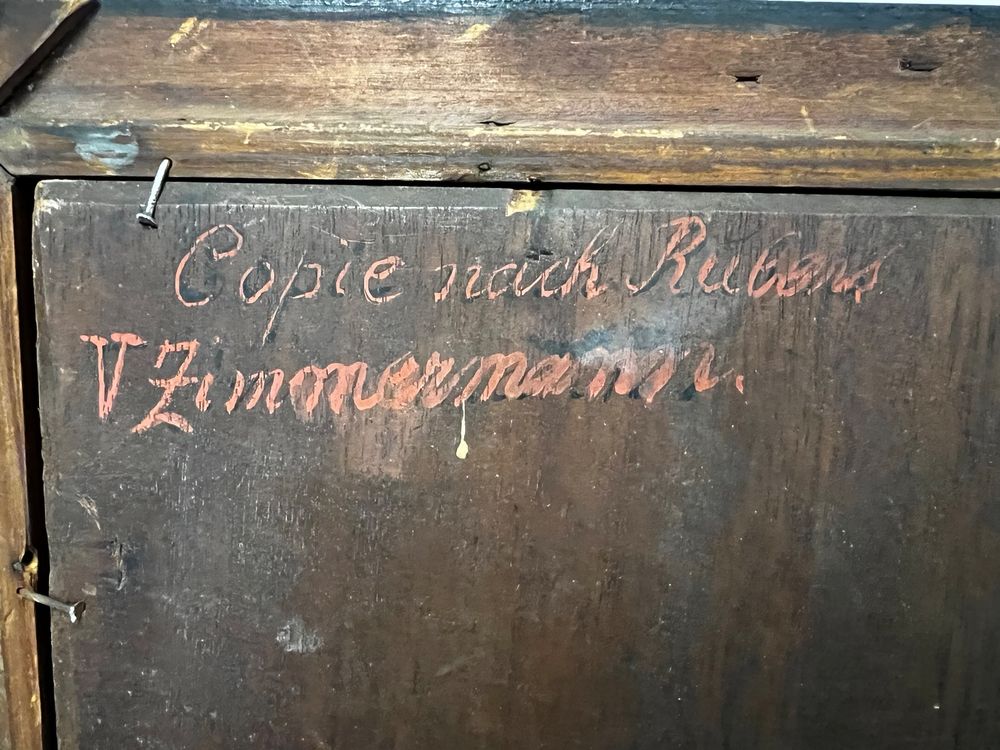 Copie nach Rubens
V Zimmermann.